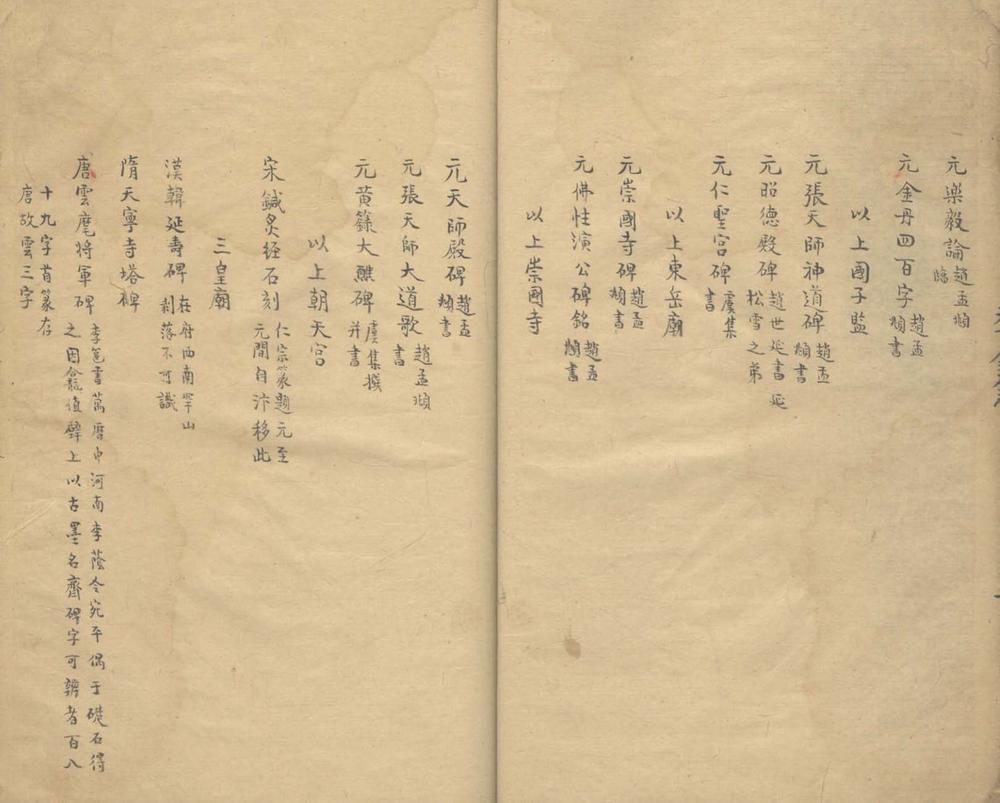 元樂毅論趙孟頫臨
元金丹四百字趙孟頫書
以上國子監
元張天師神道碑趙孟頫書
元昭德殿碑趙世延書延松雪之弟
元仁聖宮碑虞集書
以上東岳廟
元崇國寺碑趙孟頫書
元佛性演公碑銘趙孟頫書
以上崇國寺
元天師殿碑趙孟頫書
元張天師大道歌趙孟頫書
元黃籙大醮碑虞集撰并書
以上朝天宮
宋鍼炙経石刻仁宗篆題元至元間自汴移此
三皇廟
漢韓延壽碑在府西南罕山剥落不可識
隋天寧寺塔碑
唐雲麾将軍碑李邕書萬曆中河南李蔭令宛平偶于礎石得之因龕置壁上以古墨名齋碑字可辨者百八
十九字首篆存唐故雲三字